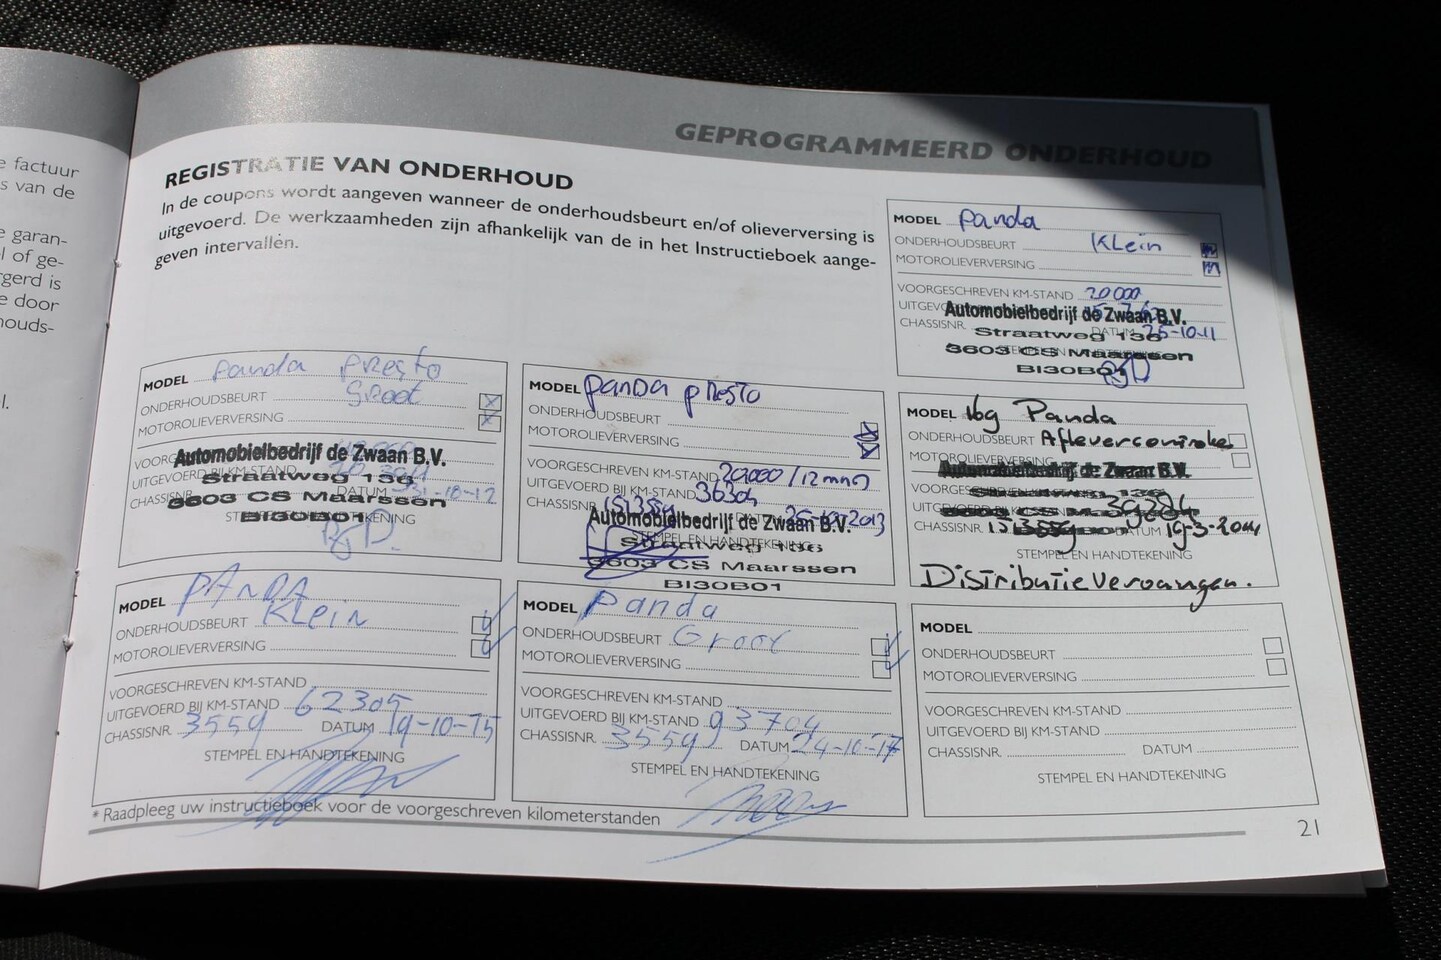 e factuur
s van de
e garan-
l of ge-
gerd is
e door
nouds-
l.
GEPROGRAMMEERD ONDERHOUD
REGISTRATIE VAN ONDERHOUD
In de coupons wordt aangeven wanneer de onderhoudsbeurt en/of olieverversing is
uitgevoerd. De werkzaamheden zijn afhankelijk van de in het Instructieboek aange-
geven intervallen.
MODEL panda
ONDERHOUDSBEURT Klein
MOTOROLIEVERVERSING
VOORGESCHREVEN KM-STAND 20000
Automobielbedrijf de Zwaan B.V.
CHASSISNR. DATUM 25-10-11
Straatweg 136
3603 CS Maarssen
BI30B01
MODEL panda presto
ONDERHOUDSBEURT Groot
MOTOROLIEVERVERSING
Automobielbedrijf de Zwaan B.V.
UITGEVOERD BIJ KM-STAND
Straatweg 136
CHASSISNR. DATUM 31-10-12
3603 CS Maarssen
BI30B01
MODEL panda presto
ONDERHOUDSBEURT
MOTOROLIEVERVERSING
VOORGESCHREVEN KM-STAND 20000/12mnd
UITGEVOERD BIJ KM-STAND 36304
CHASSISNR. 2013
Automobielbedrijf de Zwaan B.V.
STEMPEL EN HANDTEKENING
Straatweg 136
3603 CS Maarssen
BI30B01
MODEL 169 Panda
ONDERHOUDSBEURT Aflevercontrole
MOTOROLIEVERVERSING
Automobielbedrijf de Zwaan B.V.
CHASSISNR. DATUM 19-3-2014
STEMPEL EN HANDTEKENING
Distributie vervangen.
MODEL PANDA
ONDERHOUDSBEURT Klein
MOTOROLIEVERVERSING
VOORGESCHREVEN KM-STAND
UITGEVOERD BIJ KM-STAND 62305
CHASSISNR. 3559 DATUM 19-10-15
STEMPEL EN HANDTEKENING
MODEL Panda
ONDERHOUDSBEURT Groot
MOTOROLIEVERVERSING
VOORGESCHREVEN KM-STAND
UITGEVOERD BIJ KM-STAND 93704
CHASSISNR. 3559 DATUM 24-10-17
STEMPEL EN HANDTEKENING
MODEL
ONDERHOUDSBEURT
MOTOROLIEVERVERSING
VOORGESCHREVEN KM-STAND
UITGEVOERD BIJ KM-STAND
CHASSISNR. DATUM
STEMPEL EN HANDTEKENING
* Raadpleeg uw instructieboek voor de voorgeschreven kilometerstanden
21